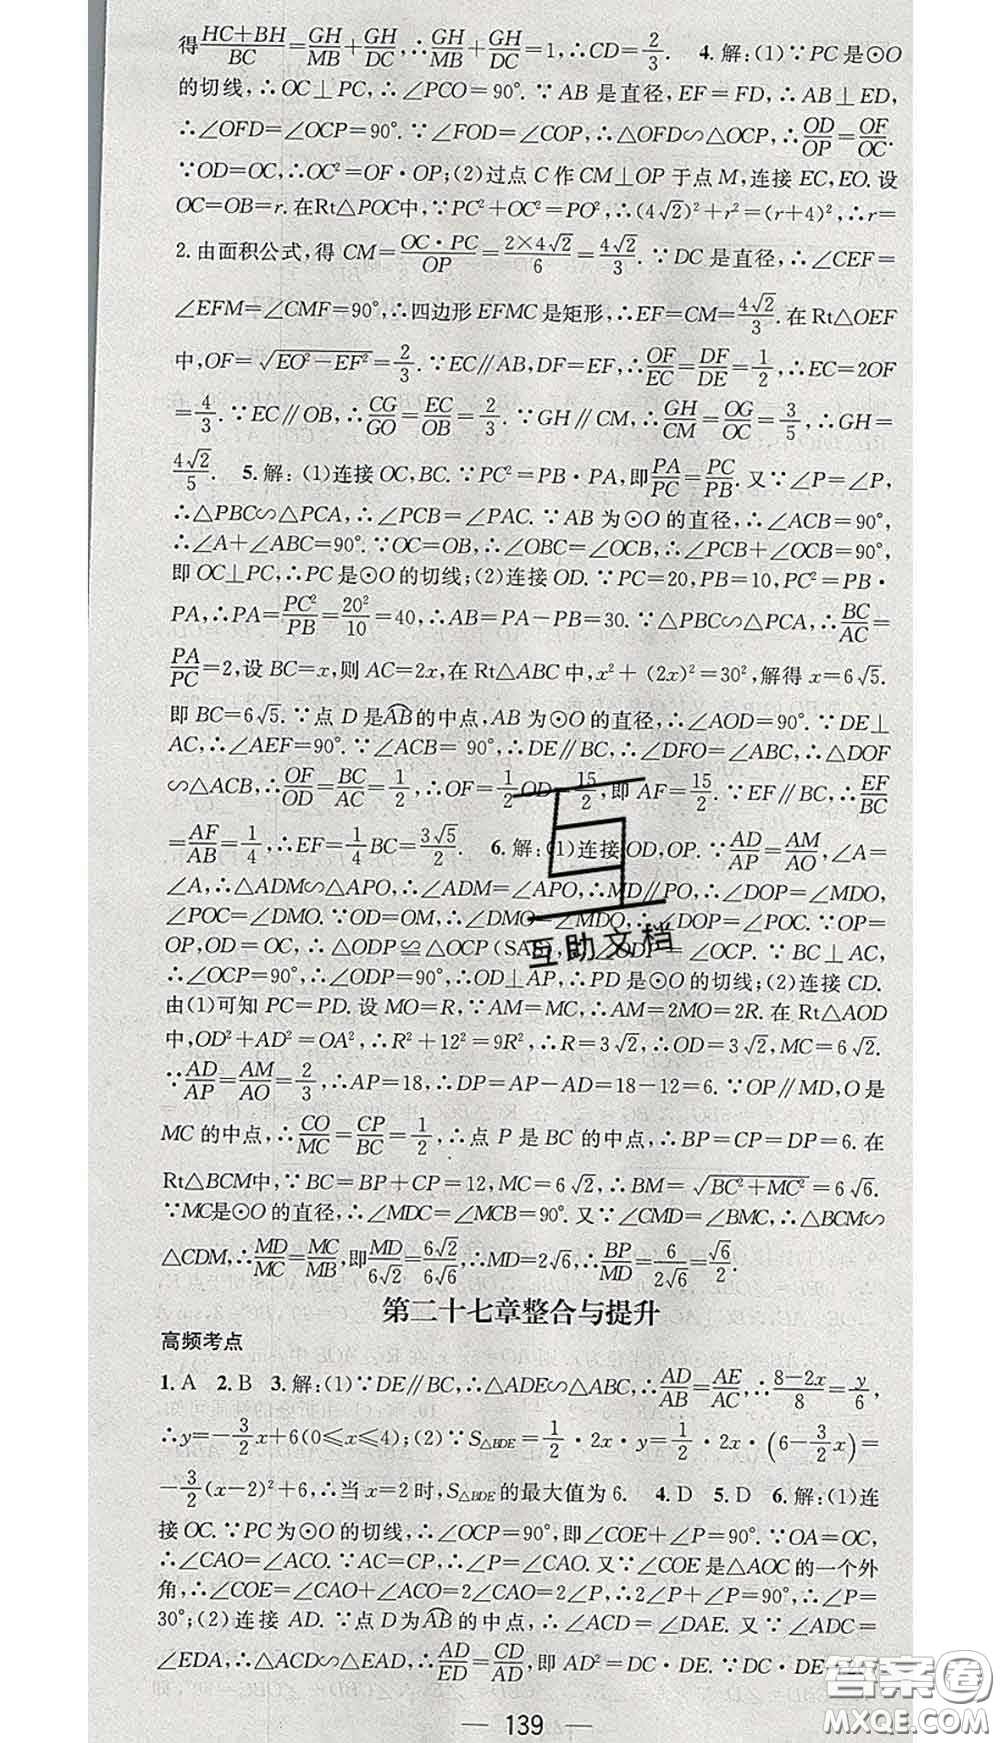 得(HC+BH)/BC=GH/MB+GH/DC,∴GH/MB+GH/DC=1,∴CD=2/3. 4.解:(1)∵PC是⊙O
的切线,∴OC⊥PC,∴∠PCO=90°.∵AB是直径,EF=FD,∴AB⊥ED,
∴∠OFD=∠OCP=90°.∵∠FOD=∠COP,∴△OFD∽△OCP,∴OD/OP=OF/OC.
∵OD=OC,∴OC²=OF·OP;(2)过点C作CM⊥OP于点M,连接EC,EO.设
OC=OB=r.在Rt△POC中,∵PC²+OC²=PO²,∴(4√2)²+r²=(r+4)²,∴r=
2.由面积公式,得CM=OC·PC/OP=2×4√2/6=4√2/3.∵DC是直径,∴∠CEF=
∠EFM=∠CMF=90°,∴四边形EFMC是矩形,∴EF=CM=4√2/3.在Rt△OEF
中,OF=√(EO²-EF²)=2/3.∵EC∥AB,DF=EF,∴OF/EC=DF/DE=1/2,∴EC=2OF
=4/3.∵EC∥OB,∴CG/GO=EC/OB=2/3.∵GH∥CM,∴GH/CM=OG/OC=3/5,∴GH=
4√2/5. 5.解:(1)连接OC,BC.∵PC²=PB·PA,即PA/PC=PC/PB.又∵∠P=∠P,
∴△PBC∽△PCA,∴∠PCB=∠PAC.∵AB为⊙O的直径,∴∠ACB=90°,
∴∠A+∠ABC=90°.∵OC=OB,∴∠OBC=∠OCB,∴∠PCB+∠OCB=90°,
即OC⊥PC,∴PC是⊙O的切线;(2)连接OD.∵PC=20,PB=10,PC²=PB·
PA,∴PA=PC²/PB=20²/10=40,∴AB=PA-PB=30.∵△PBC∽△PCA,∴BC/AC=
PA/PC=2,设BC=x,则AC=2x,在Rt△ABC中,x²+(2x)²=30²,解得x=6√5.
即BC=6√5.∵点D是AB的中点,AB为⊙O的直径,∴∠AOD=90°.∵DE⊥
AC,∴∠AEF=90°.∵∠ACB=90°,∴DE∥BC,∴∠DFO=∠ABC,∴△DOF
∽△ACB,∴OF/OD=BC/AC=1/2,∴OF=1/2OD=15/2,即AF=15/2.∵EF∥BC,∴EF/BC
=AF/AB=1/4,∴EF=1/4BC=3√5/2. 6.解:(1)连接OD,OP.∵AD/AP=AM/AO,∠A=
∠A,∴△ADM∽△APO,∴∠ADM=∠APO,∴MD∥PO,∴∠DOP=∠MDO,
∠POC=∠DMO.∵OD=OM,∴∠DMO=∠MDO,∴∠DOP=∠POC.∵OP=
OP,OD=OC,∴△ODP≌△OCP(SAS),∴∠ODP=∠OCP.∵BC⊥AC,
∴∠OCP=90°,∴∠ODP=90°,∴OD⊥AP,∴PD是⊙O的切线;(2)连接CD.
由(1)可知PC=PD.设MO=R,∵AM=MC,∴AM=2MO=2R.在Rt△AOD
中,OD²+AD²=OA²,∴R²+12²=9R²,∴R=3√2,∴OD=3√2,MC=6√2.
∵AD/AP=AM/AO=2/3,∴AP=18,∴DP=AP-AD=18-12=6.∵OP∥MD,O是
MC的中点,∴CO/MC=CP/BC=1/2,∴点P是BC的中点,∴BP=CP=DP=6.在
Rt△BCM中,∵BC=BP+CP=12,MC=6√2,∴BM=√(BC²+MC²)=6√6.
∵MC是⊙O的直径,∴∠MDC=∠MCB=90°.又∵∠CMD=∠BMC,∴△BCM∽
△CDM,∴MD/MC=MC/MB,即MD/6√2=6√2/6√6,∴MD=2√6,∴BP/MD=6/2√6=√6/2.
第二十七章整合与提升
高频考点
1.A 2.B 3.解:(1)∵DE∥BC,∴△ADE∽△ABC,∴AD/AB=AE/AC,∴(8-2x)/8=y/6,
∴y=-3/2x+6(0≤x≤4);(2)∵S△BDE=1/2·2x·y=1/2·2x·(6-3/2x)=
-3/2(x-2)²+6,∴当x=2时,S△BDE的最大值为6. 4.D 5.D 6.解:(1)连
接OC.∵PC为⊙O的切线,∴∠OCP=90°,即∠COE+∠P=90°.∵OA=OC,
∴∠CAO=∠ACO.∵AC=CP,∴∠P=∠CAO.又∵∠COE是△AOC的一个外
角,∴∠COE=∠CAO+∠ACO=2∠CAO=2∠P,∴2∠P+∠P=90°,∴∠P=
30°;(2)连接AD.∵点D为AB的中点,∴∠ACD=∠DAE.又∵∠ADC=
∠EDA,∴△ACD∽△EAD,∴AD/ED=CD/AD,即AD²=DC·DE.∵DC·DE
— 139 —
互助文档
答案圈
MXQE.COM